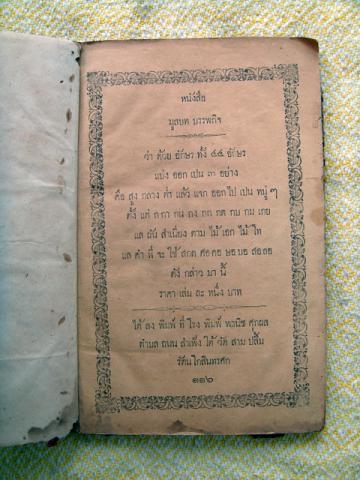 หนังสือ
มูลบท บรรพกิจ
ว่า ด้วย อักษร ทั้ง ๔๔ อักษร
แบ่ง ออก เปน ๓ อย่าง
คือ สูง กลาง ต่ำ แล้ว แจก ออก ไป เปน หมู่ ๆ
ตั้ง แต่ ก กา กน กง กก กด กบ กม เกย
แล ผัน สำเนียง ตาม ไม้ เอก ไม้ โท
แล คำ ที่ จะ ใช้ สกด ศอ คอ ษอ บอ สอ ลอ
ดัง กล่าว มา นี้
ราคา เล่ม ละ หนึ่ง บาท
ได้ ลง พิมพ์ ที่ โรง พิมพ์ พานิช ศุภผล
ตำบล ถนน สำเพ็ง ใต้ วัด สาม ปลื้ม
รัตน โกสินทรศก
๑๑๖